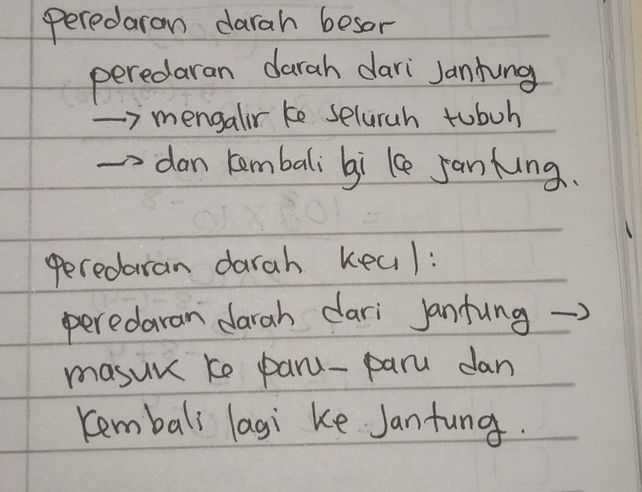 peredaran darah besar
peredaran darah dari Jantung
→ mengalir ke seluruh tubuh
→ dan kembali lgi ke jantung.
peredaran darah kecil:
peredaran darah dari jantung →
masuk ke paru-paru dan
kembali lagi ke Jantung.